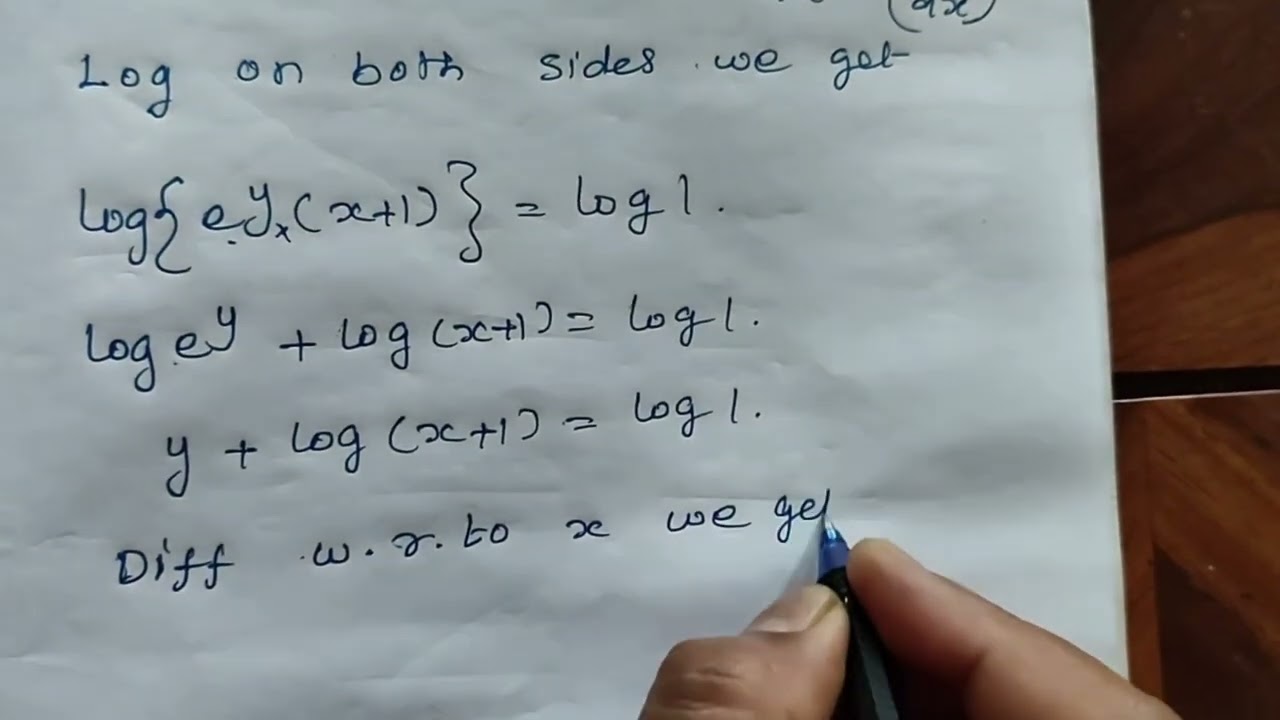 (dx)
Log on both sides we get
log{e^y × (x+1)} = log 1.
log e^y + log (x+1) = log 1.
y + log (x+1) = log 1.
Diff w.r.to x we get